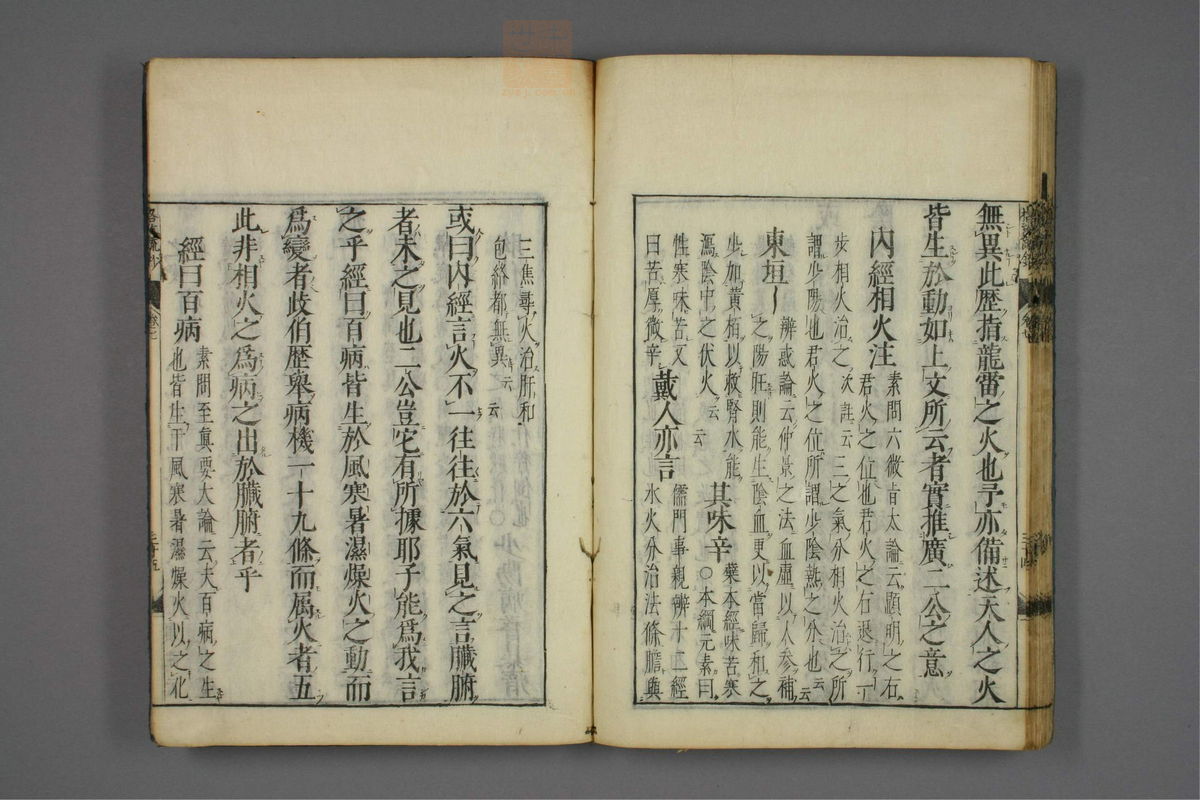 無異此歷指龍雷之火也予亦備述天人之火
皆生於動如上文所云者實推廣二公之意
內經相火注
素問六微旨太論云顯明之右
君火之位也君火之右退行一
步相火治之次註云三之氣分相火治之所
謂少陽也君火之位所謂少陰熱之分也云
東垣
辨惑論云仲景之法血虛以人參補
之陽旺則能生陰血更以當歸和之
少加黃栢以救腎水能
瀉陰中之伏火云云
其味辛
藥本經味苦寒
○本綱元素曰
性寒味苦又
曰苦厚微辛
戴人亦言
儒門事親辨十二經
水火分治法條膽與
三焦尋火治肝和
包絡都無異云云
或曰內經言火不一往往於六氣見之言臟腑
者未之見也二公豈它有所據耶子能爲我言
之乎經曰百病皆生於風寒暑濕燥火之動而
爲變者歧伯歷舉病機一十九條而属火者五
此非相火之爲病之出於臟腑者乎
經曰百病
素問至真要大論云夫百病之生
也皆生于風寒暑濕燥火以之化